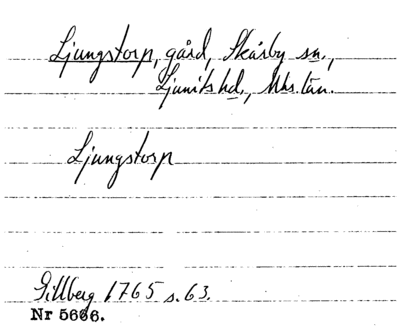 Ljungstorp, gård, Skårby sn.,
Ljunits hd., Mhs. län.
Ljungstorp
Gillberg 1765 s. 63.
Nr 5666.